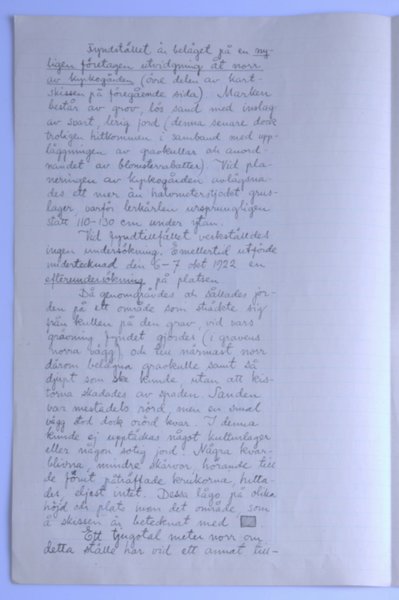 Fyndstället är beläget på en ny-
ligen företagen utvidgning åt norr
av kyrkogården (övre delen av kart-
skissen på föregående sida). Marken
består av grov, lös sand med inslag
av svart, lerig jord (denna senare dock
troligen hitkommen i samband med upp-
läggningen av gravkullar och anord-
nandet av blomsterrabatter). Vid pla-
neringen av kyrkogården avlägsna-
des ett mer än halvmetertjockt grus-
lager varför lerkärlen ursprungligen
stått 110-130 cm under ytan.
Vid fyndtillfället verkställdes
ingen undersökning. Emellertid utförde
undertecknad den 6-7 okt 1922 en
efterundersökning på platsen
Då genomgrävdes och sållades jor-
den på ett område som sträckte sig
från kullen på den grav, vid vars
grävning fyndet gjordes (i gravens
norra vägg), och till närmast norr
därom belägna gravkulle samt så
djupt som ske kunde, utan att kis-
torna skadades av spaden. Sanden
var mestadels rörd, men en smal
vägg stod dock orörd kvar. I denna
kunde ej upptäckas något kulturlager
eller någon sotig jord. Några kvar-
blivna, mindre skärvor, hörande till
de förut påträffade krukorna, hitta-
des, eljest intet. Dessa lågo på olika
höjd och plats inom det område, som
å skissen är betecknat med
Ett tjugotal meter norr om
detta ställe har vid ett annat till-